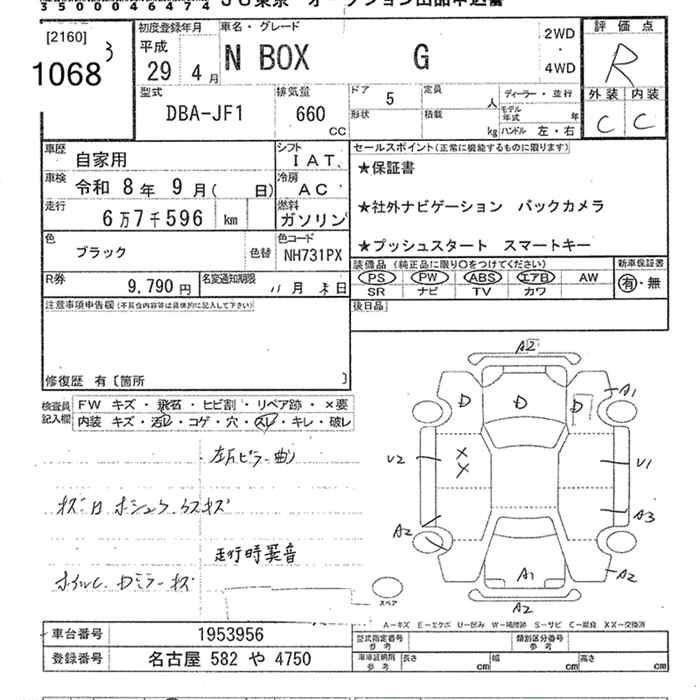 350000464474 JU東京 オークション出品申込書
[2160]
3
1068
初度登録年月 車名・グレード
平成
29 4月
N BOX G
2WD
・
4WD
評価点
R
外装 内装
C C
型式 DBA-JF1
排気量 660 CC
ドア 5
定員 人
形状
積載 kg
ディーラー・並行
モデル年式 年
ハンドル 左・右
車歴 自家用
シフト IAT
車検 令和 8年 9月( 日)
冷房 AC
走行 6万7千596 km
燃料 ガソリン
色 ブラック 色替
色コード NH731PX
R券 9,790円
名変通知期限 11月末日
セールスポイント(正常に機能するものに限ります)
★保証書
★社外ナビゲーション バックカメラ
★プッシュスタート スマートキー
装備品(純正品に限り○をつけてください)
PS PW ABS エアB AW
SR ナビ TV カワ
新車保証書
有・無
後日品
注意事項申告欄(不具合内容等は具体的に記入して下さい)
修復歴 有〔箇所 〕
検査員記入欄
FW キズ・飛石・ヒビ割・リペア跡・×要
内装 キズ・汚レ・コゲ・穴・スレ・キレ・破レ
左Aピラー曲り
走行時異音
A2
D D D A1
U2 X X U1
A2 A3
A1 A2
A2
スペア
A-キズ E-エクボ U-凹み W-補修跡 S-サビ C-腐食 XX-交換済
車台番号 1953956
登録番号 名古屋 582 や 4750
型式指定番号 参考
類別区分番号 参考
車庫証明用 参考
長さ cm 幅 cm 高さ cm